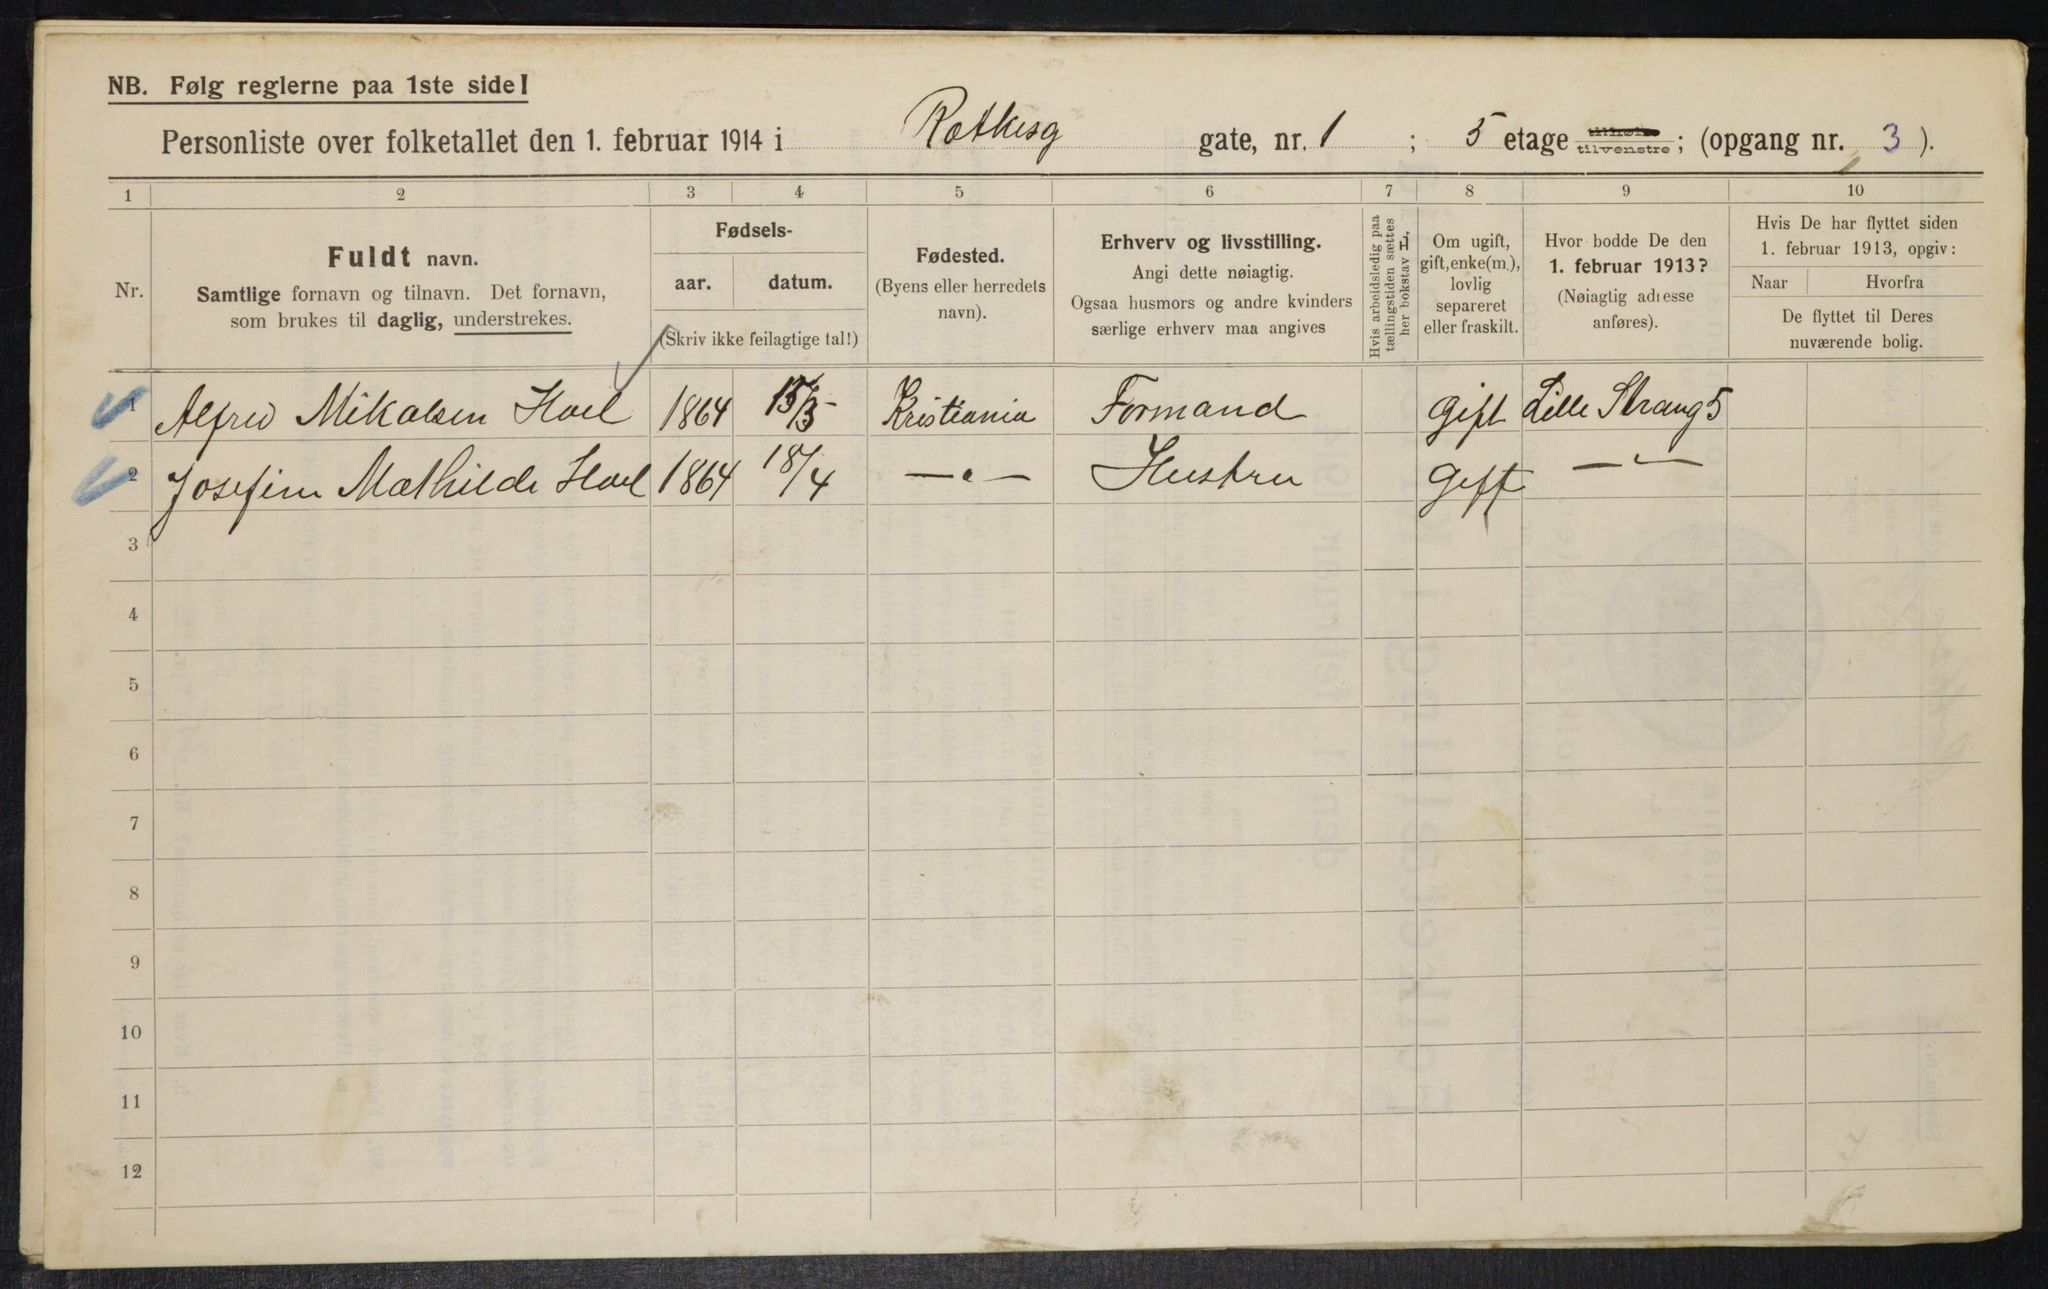 NB. Følg reglerne paa 1ste side!
Personliste over folketallet den 1. februar 1914 i Ratkesg gate, nr. 1 ; 5 etage tilhøire tilvenstre; (opgang nr. 3).
1 2 3 4 5 6 7 8 9 10
Nr.
Fuldt navn.
Samtlige fornavn og tilnavn. Det fornavn,
som brukes til daglig, understrekes.
Fødsels-
aar. datum.
(Skriv ikke feilagtige tal!)
Fødested.
(Byens eller herredets
navn).
Erhverv og livsstilling.
Angi dette nøiagtig.
Ogsaa husmors og andre kvinders
særlige erhverv maa angives
Hvis arbeidsledig paa
tællingstiden sættes
her bokstav L.
Om ugift,
gift, enke(m.),
lovlig
separeret
eller fraskilt.
Hvor bodde De den
1. februar 1913?
(Nøiagtig adresse
anføres).
Hvis De har flyttet siden
1. februar 1913, opgiv:
Naar Hvorfra
De flyttet til Deres
nuværende bolig.
1 Alfred Mikalsen Hoel 1864 15/3 Kristiania Formand gift Lille Strang 5
2 Josefine Mathilde Hoel 1864 18/4 —„— Hustru Gift —„—
3
4
5
6
7
8
9
10
11
12